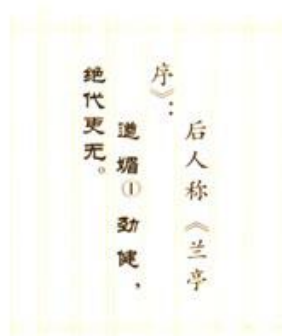 后人称《兰亭
序》：
遒媚①劲健，
绝代更无。